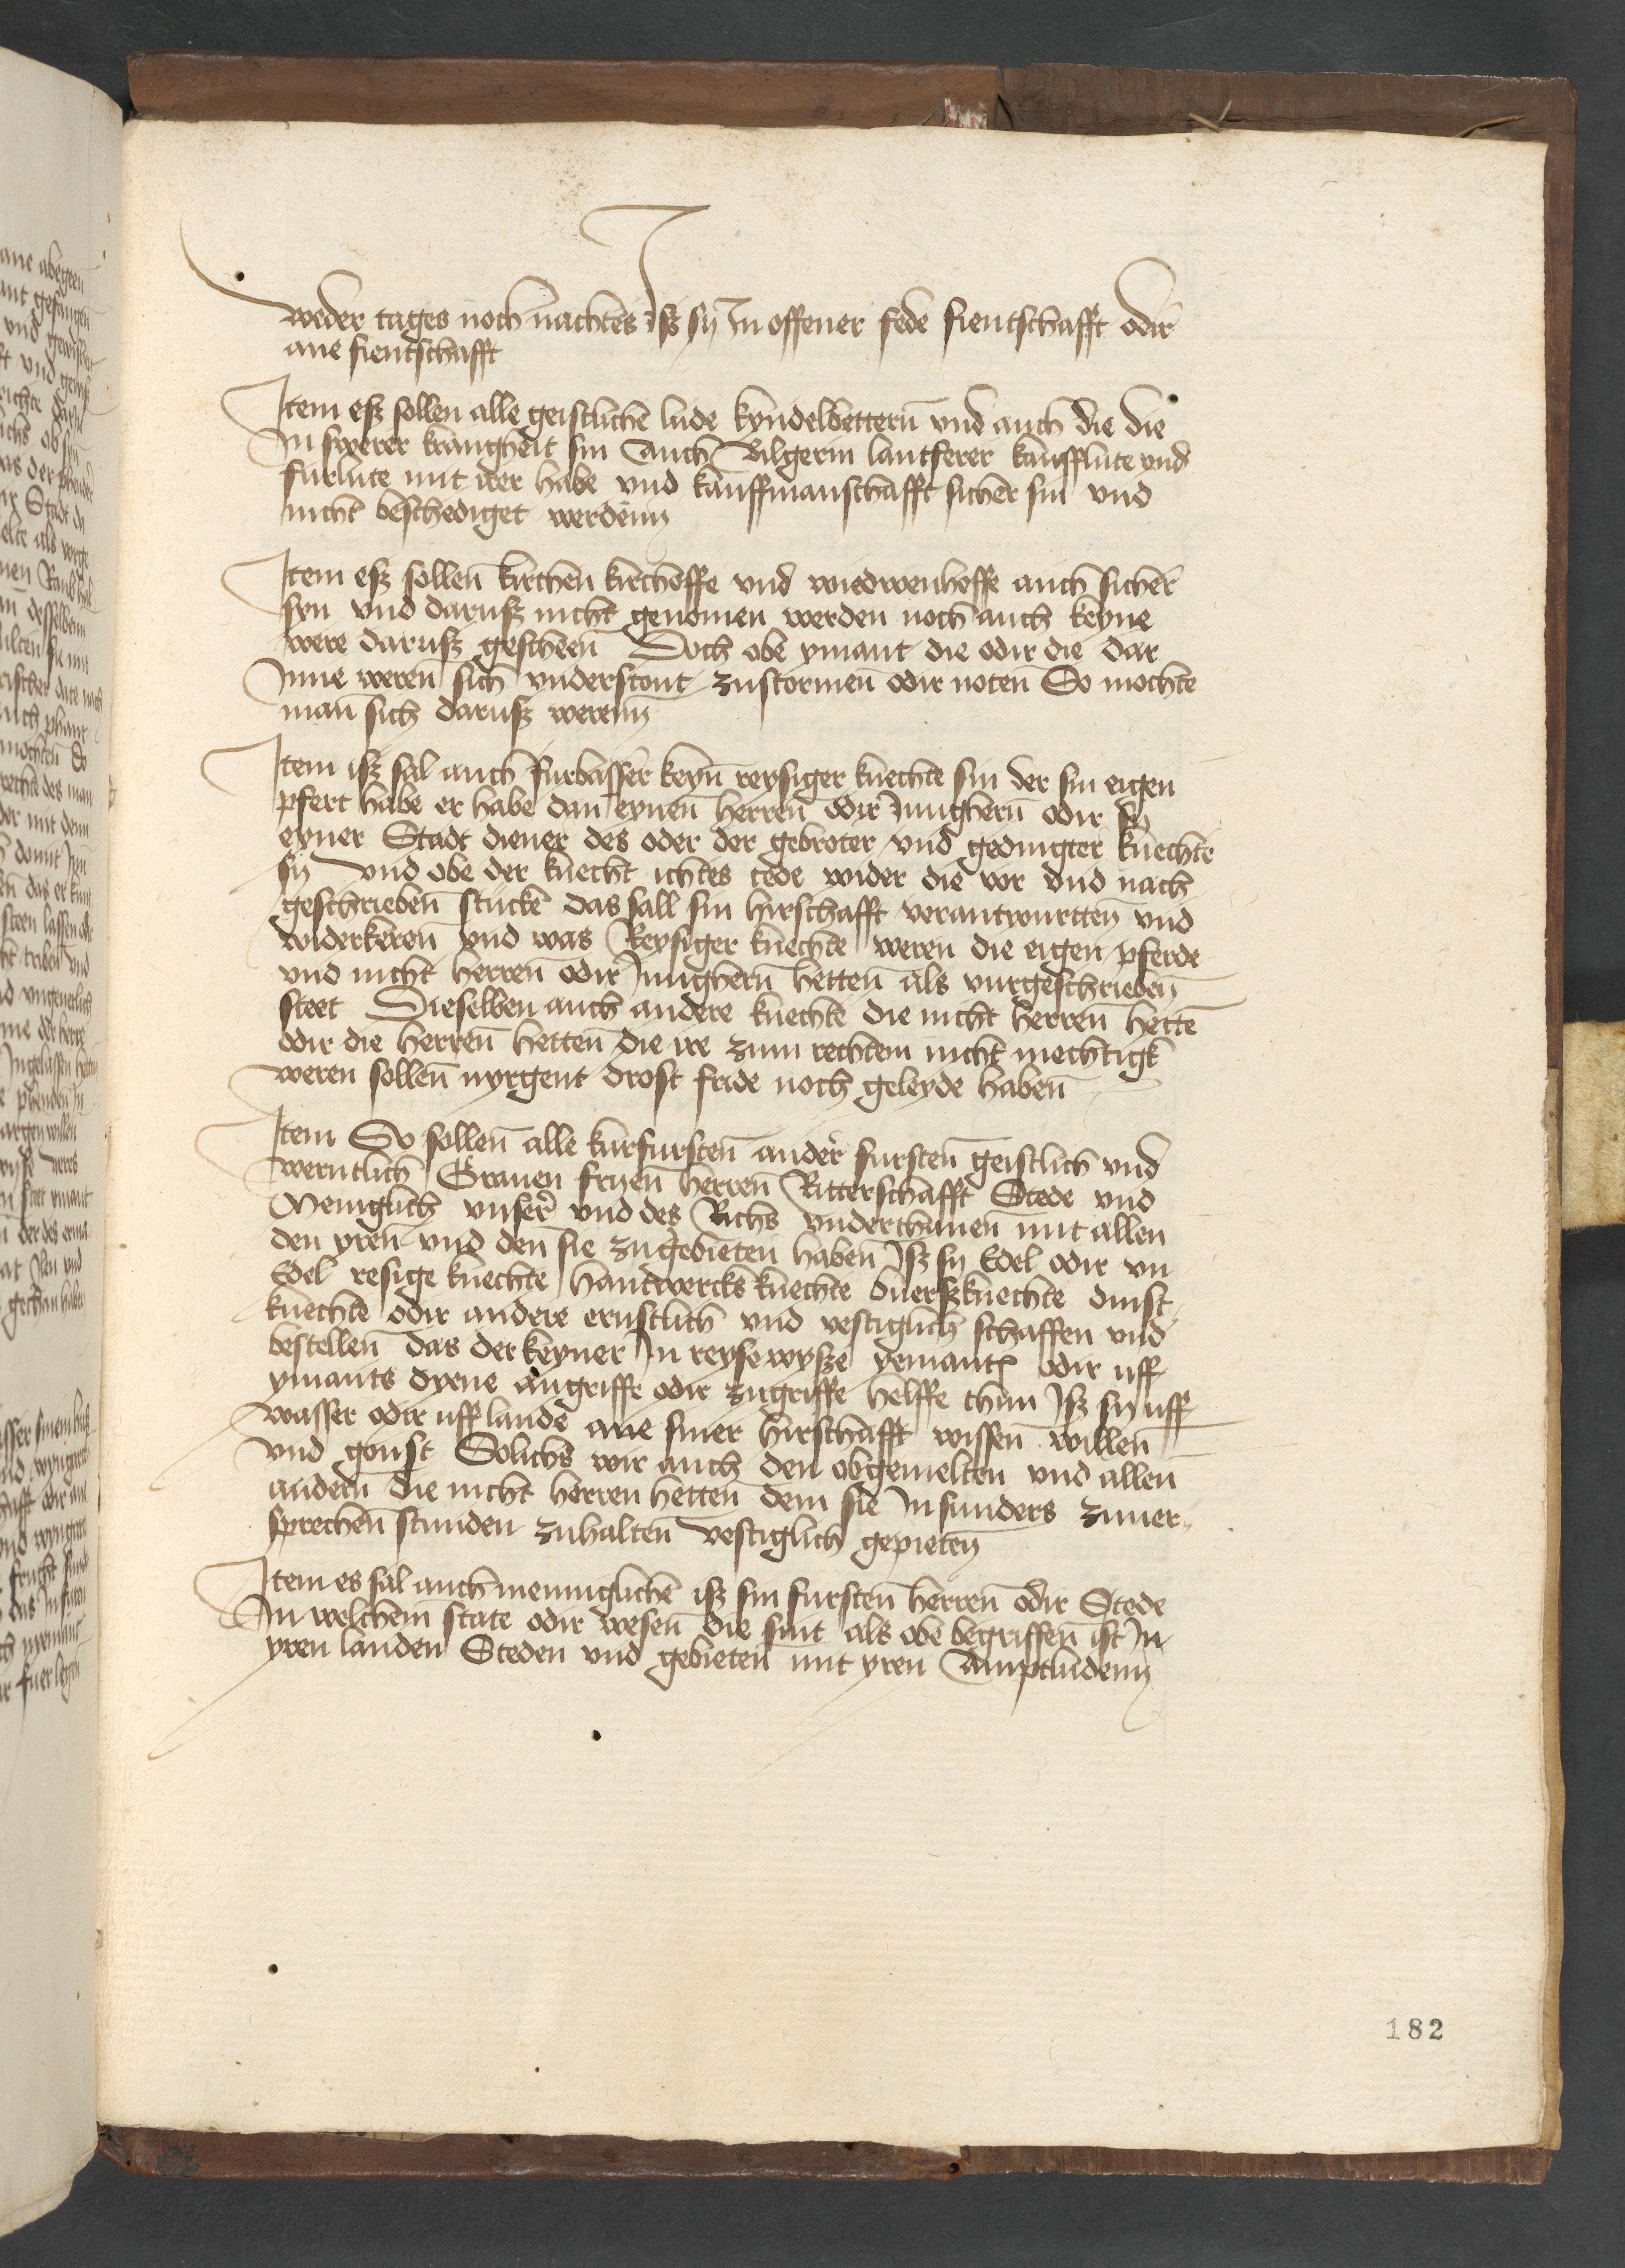 weder tages noch nachtes Isz sy In offener fede fientschafft odir
ane fientschafft
Item esz sollen alle geistliche lude kyndelbettern̄ vnd auch die die
In swerer krangheit sin Auch Bilgerin lantferer kaufflute vnd
furlute mit irer habe vnd kauffmanschafft sicher sin vnd
nicht beschediget werdenn
Item esz sollen̄ kirchen kirchoffe vnd wiedwenhoffe auch sicher
syn vnd darusz nicht genomen werden noch auch keyne
were darusz gescheen̄ Doch obe ymant die odir die dar
Inne weren̄ sich vnderstont zustormen̄ odir noten̄ So mochte
man̄ sich darusz werenn
Item isz sal auch furbasser keyn̄ reysiger knechte sin der sin eigen
pfert habe er habe dan̄ eynen̄ herren̄ odir Jungherrn̄ odir sy
eyner Stadt diener des oder der gebroter vnd gedingter knechte
sy vnd obe der knecht ichtes tede wider die vor vnd nach
geschrieben̄ stucke das sall sin hirschafft verantwurtten̄ vnd
widerkeren̄ vnd was Reysiger knechte weren die eigen pferde
vnd nicht herren̄ odir Jungherrn̄ hetten̄ als vurgeschrieben̄
steet Dieselben auch andere knechte die nicht herren̄ hette
odir die herren̄ hetten̄ die ire zum rechtem nicht mechtigk
weren sollen̄ nyrgent drost fride noch geleyde haben̄
Item So sollen̄ alle kurfursten̄ ander fursten̄ geistlich vnd
werntlich Grauen fryen̄ herren̄ Ritterschafft Stede vnd
Meniglich vnser vnd des Richs vnderthanen̄ mit allen
den yren̄ vnd den̄ sie zugebieten̄ haben̄ Isz sy Edel odir vn
Edel resige knechte handwercks knechte buerszknechte dinst
knechte odir andere ernstlich vnd vestiglich schaffen vnd
bestellen̄ das der keyner In reysewysze yemantz odir uff
ymants dyene angriffe odir zugriffe helffe thun Isz sy uff
wasser odir uff lande ane siner hirschafft wissen̄ willen̄
vnd gonst Solichs wir auch den obgemelten vnd allen̄
andern̄ die nicht herren hetten̄ dem sie Insunders zuuer
sprechen̄ stunden zuhalten̄ vestiglich gepieten̄
Item es sal auch menniglichē isz sin fursten̄ herren̄ odir Stede
In welchem̄ state odir wesen̄ die sint als obe begriffen̄ ist In
yren landen Steden vnd gebieten̄ mit yren Amptludenn
182